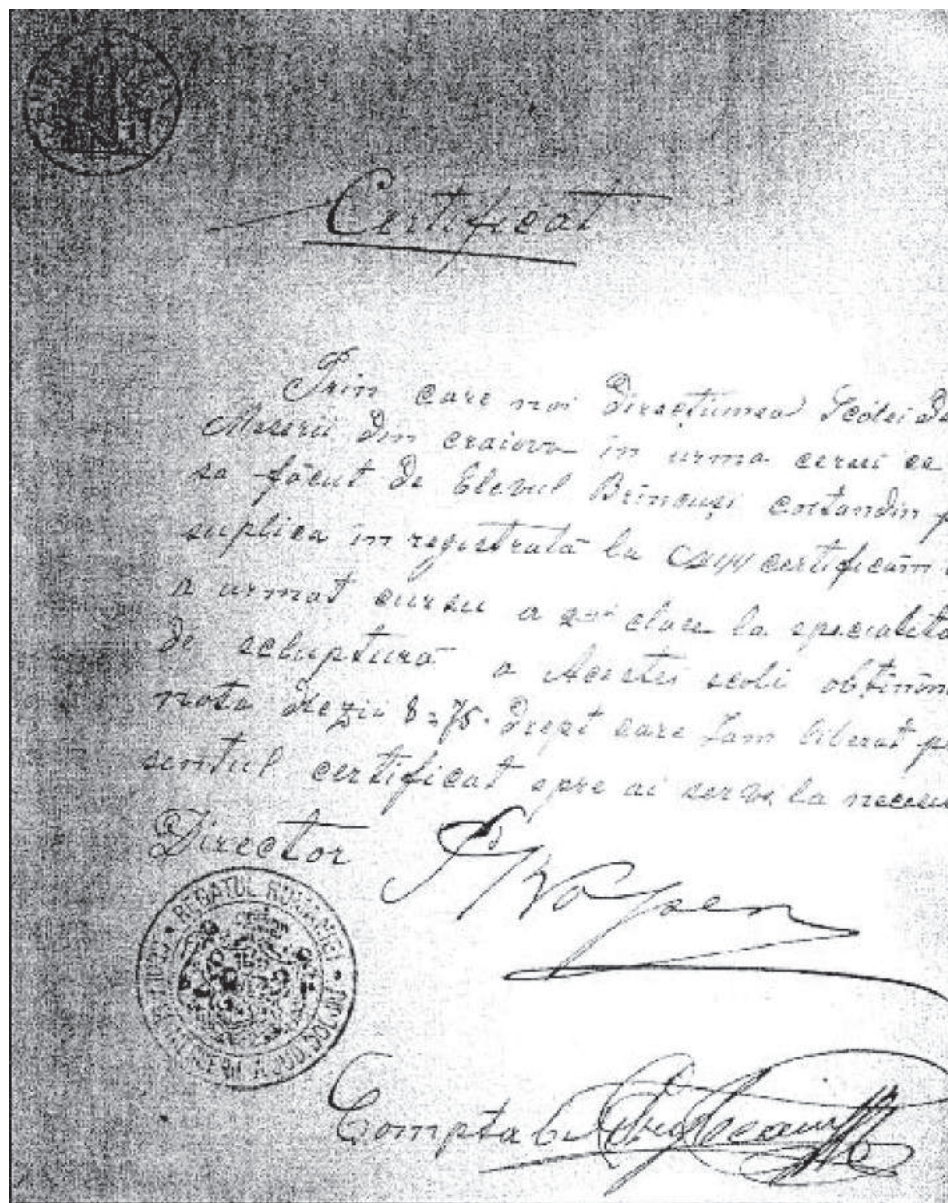 Certificat
Prin care noi Direcțiunea Scólei de
Meserii din craiova în urma cerere ce
sa făcut de Elevul Brîncuși costandin
suplica în registrată la certificăm
a urmat cursu a clase la specialita
de sclupturâ a Acestei scoli obținîn
nota 8=75. Drept care Iam liberat
sentul certificat spre ai servi la
Director
REGATUL ROMÂNIEI
Comptabil